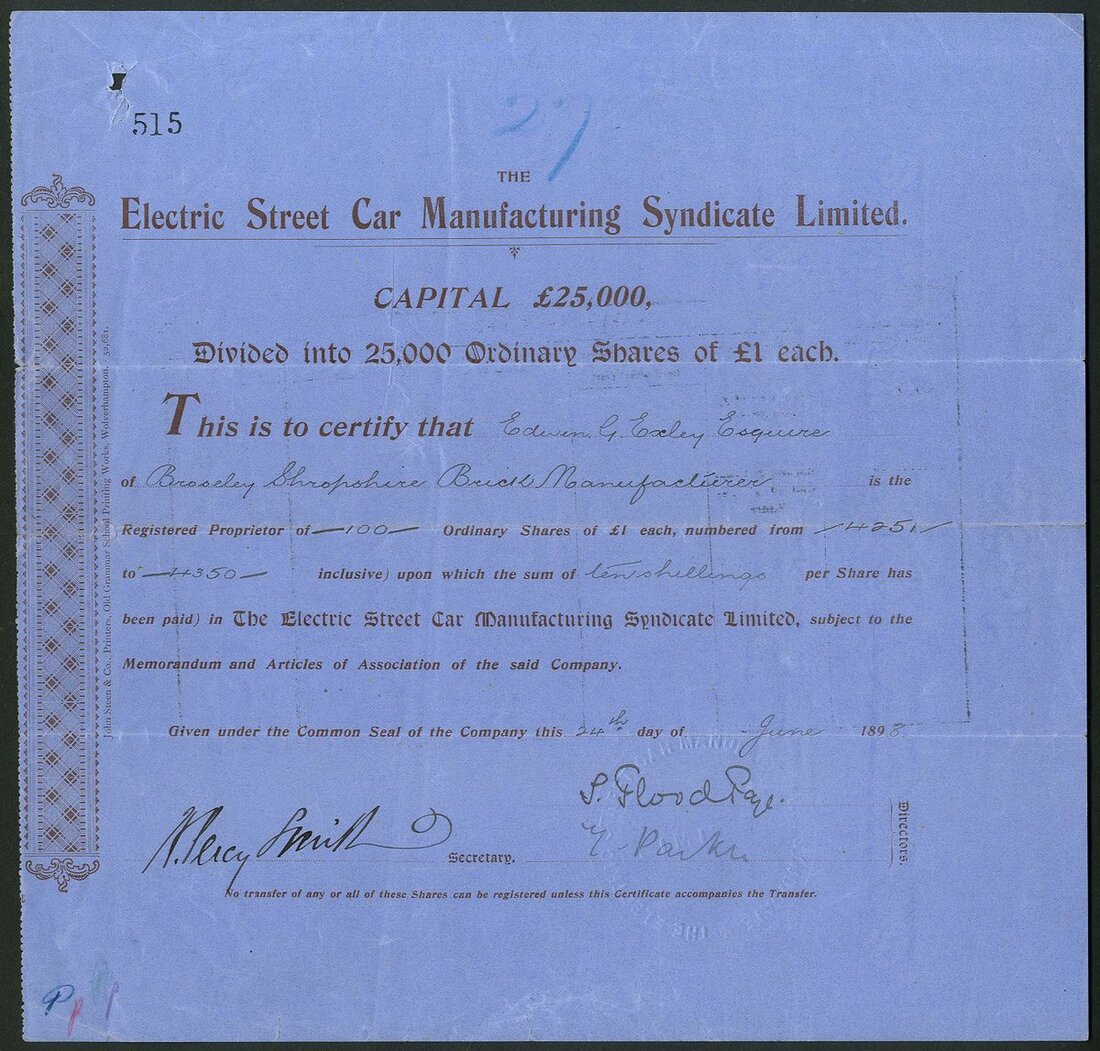 515
27
THE
Electric Street Car Manufacturing Syndicate Limited.
CAPITAL £25,000,
Divided into 25,000 Ordinary Shares of £1 each.
This is to certify that Edwin G. Exley Esquire
of Broseley Shropshire Brick Manufacturer is the
Registered Proprietor of —100— Ordinary Shares of £1 each, numbered from 4251
to —4350— inclusive) upon which the sum of ten shillings per Share has
been paid) in The Electric Street Car Manufacturing Syndicate Limited, subject to the
Memorandum and Articles of Association of the said Company.
Given under the Common Seal of the Company this 24th day of June 1898
S. Flood Page.
Parker
Directors.
Percy Smith
Secretary.
No transfer of any or all of these Shares can be registered unless this Certificate accompanies the Transfer.
John Steen & Co., Printers, Old Grammar School Printing Works, Wolverhampton. 52,681.
P
P
P